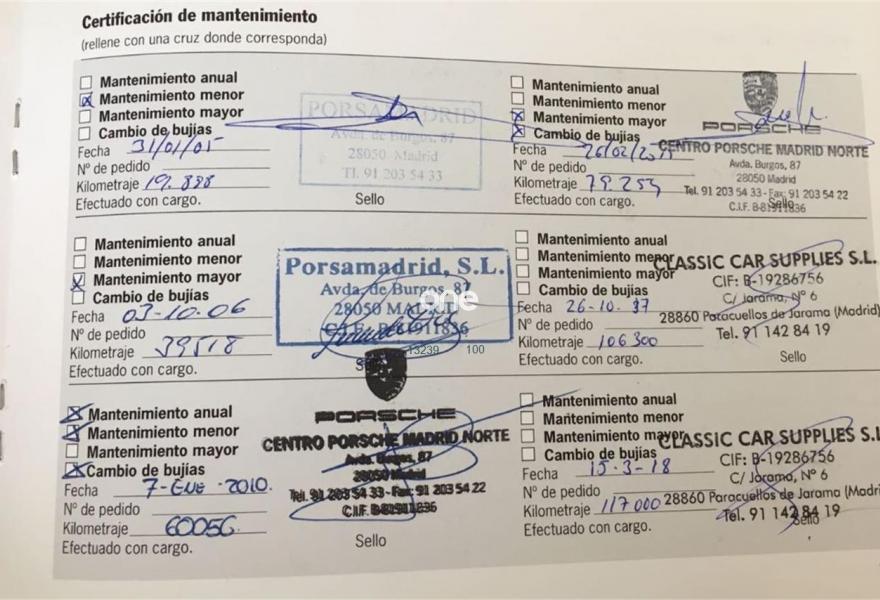 Certificación de mantenimiento
(rellene con una cruz donde corresponda)
Mantenimiento anual
Mantenimiento menor
Mantenimiento mayor
Cambio de bujías
Fecha 31/01/05
Nº de pedido
Kilometraje 19.888
Efectuado con cargo.
PORSAMADRID
Avda. de Burgos, 87
28050 Madrid
Tl. 91 203 54 33
Sello
Mantenimiento anual
Mantenimiento menor
Mantenimiento mayor
Cambio de bujías
Fecha 26/02/
Nº de pedido
Kilometraje 79.253
Efectuado con cargo.
PORSCHE
CENTRO PORSCHE MADRID NORTE
Avda. Burgos, 87
28050 Madrid
Tel. 91 203 54 33 - Fax: 91 203 54 22
C.I.F. B-81911836
Sello
Mantenimiento anual
Mantenimiento menor
Mantenimiento mayor
Cambio de bujías
Fecha 03-10.06
Nº de pedido
Kilometraje 39518
Efectuado con cargo.
Porsamadrid, S.L.
Avda. de Burgos, 87
28050 MADRID
C.I.F. B-81911836
one
13239 100
Mantenimiento anual
Mantenimiento menor
Mantenimiento mayor
Cambio de bujías
Fecha 26-10.
Nº de pedido
Kilometraje 106300
Efectuado con cargo.
CLASSIC CAR SUPPLIES S.L.
CIF: B-19286756
C/ Jarama, Nº 6
28860 Paracuellos de Jarama (Madrid)
Tel. 91 142 84 19
Sello
Mantenimiento anual
Mantenimiento menor
Mantenimiento mayor
Cambio de bujías
Fecha 7-ENE-2010.
Nº de pedido
Kilometraje 60056
Efectuado con cargo.
PORSCHE
CENTRO PORSCHE MADRID NORTE
Avda. Burgos, 87
28050 Madrid
Tel. 91 203 54 33 - Fax: 91 203 54 22
C.I.F. B-81911836
Sello
Mantenimiento anual
Mantenimiento menor
Mantenimiento mayor
Cambio de bujías
Fecha 15-3-18
Nº de pedido
Kilometraje 117000
Efectuado con cargo.
CLASSIC CAR SUPPLIES S.L
CIF: B-19286756
C/ Jarama, Nº 6
28860 Paracuellos de Jarama (Madri
Tel. 91 142 84 19
Sello